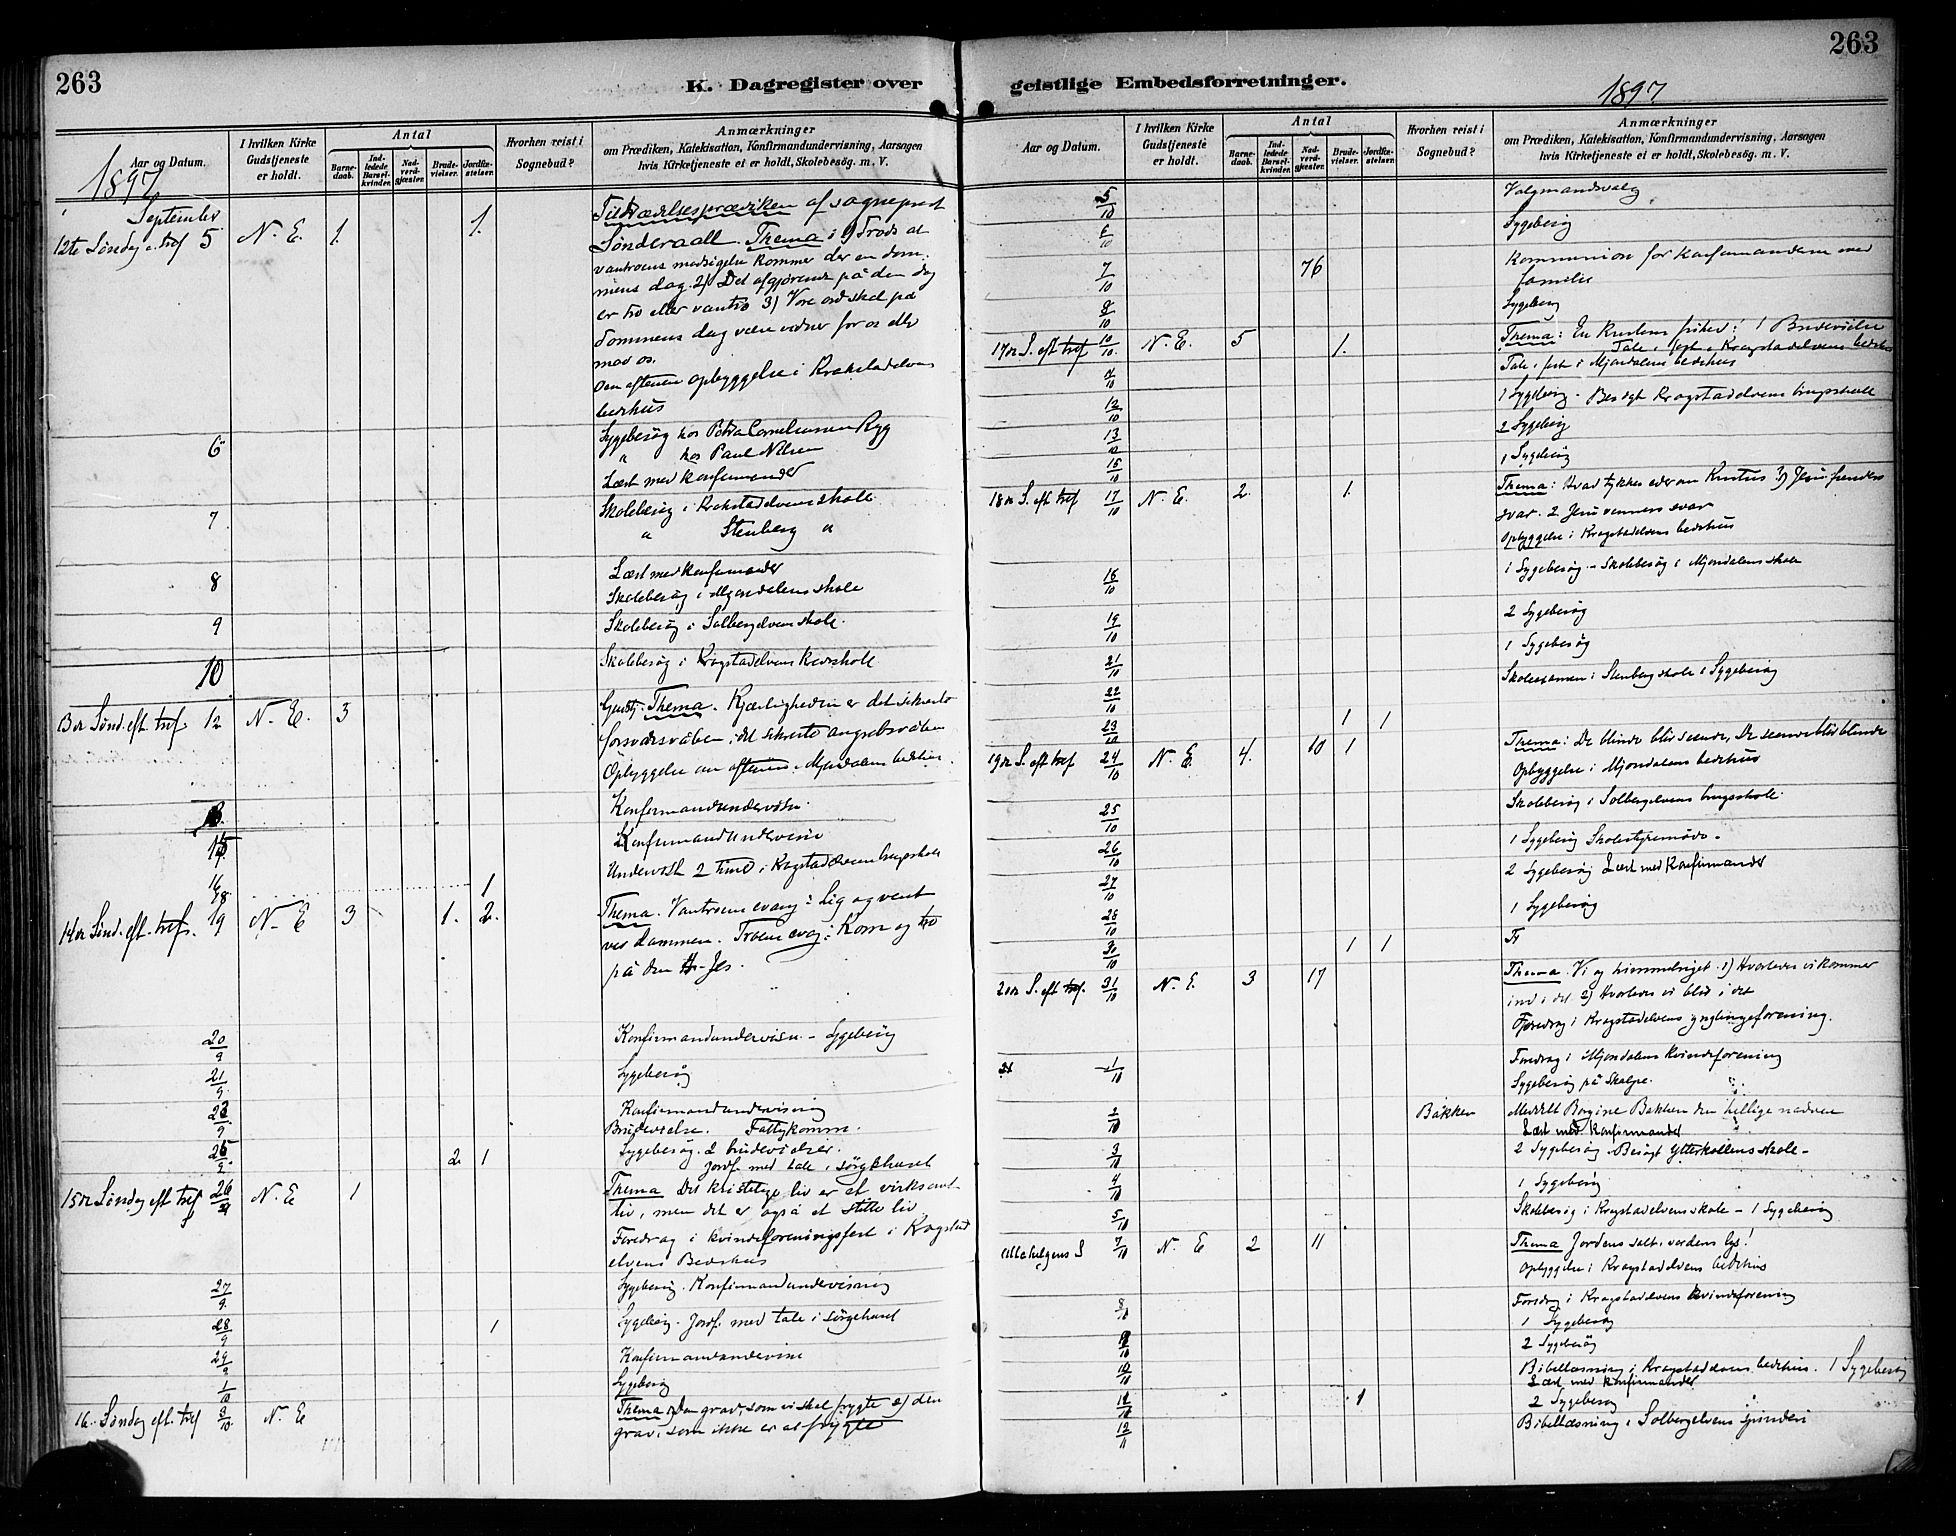 263
K. Dagregister over
Aar og Datum.
I hvilken Kirke Gudstjeneste er holdt.
Antal
Barne-daab.
Ind-ledede Barsel-kvinder.
Nad-verd-gjæster.
Brude-vielser.
Jordfæ-stelser.
Hvorhen reist i Sognebud?
Anmærkninger
om Prædiken, Katekisation, Konfirmandundervisning, Aarsagen
hvis Kirketjeneste ei er holdt, Skolebesög. m. V.
1897
September
12te Søndag e. tref 5 N. E. 1. 1. Tiltrædelsesprædiken af sogneprest
Sønderaall. Thema: 1) Trods al
vantroens modsigelse kommer der en dom-
mens dag. 2) Det afgjørende på den dag
er tro eller vantro 3) Vore ord skal på
dommens dag være vidner for os eller
mod os.
Om aftenen opbyggelse i Krokstadelvens
bedehus
6 Sygebesøg hos Petra Corneliussen Ryg
" hos Paul Nilsen
Læst med konfirmander
7 Skolebesøg i Krokstadelvens skole
" Stenberg "
8 Læst med konfirmander
Skolebesøg i Mjøndalens skole
9 Skolebesøg i Solbergelvens skole.
10 Skolebesøg i Krogstadelvens skole
13de Sønd. eft. tref. 12 N. E. 3 Thema. Kjærligheden er det sikreste
forsvarsvåben, det sikreste angrebsvåben
Opbyggelse om aftenen i Mjøndalens bedehus.
Konfirmandundervisn.
15 Konfirmandundervisn
16 Undervist 2 timer i Krogstadelvens brugsskole
18. 1
14de Sønd. eft. tref. 19 N. E 3 1. 2. Thema. Vantroens evang: Lig og vent
ved dammen. Troens evag: Kom og tro
på den H. Jes.
20/9 Konfirmandundervisn. - Sygebesøg
21/9 Sygebesøg
23/9 Konfirmandundervisning
Brudevielse. Fattigkomm.
25/9 2. 1 Sygebesøg. 2 brudevielser.
Jordf. med tale i sørgehuset
15de Søndag eft tref 26/9 N. E 1 Thema Det kristelige liv er et virksomt
liv, men det er også et stille liv
Foredrag i kvindeforeningsfest i Krogstad
elvens Bedehus
27/9. Sygebesøg. Konfirmandundervisning
28/9 1 Sygebesøg. Jordf. med tale i sørgehuset
29/9 Konfirmandundervisn
1/10 Sygebesøg
16. Søndag eft. tref 3/10 N. E Thema 1) Den grav, som vi skal frygte 2) den
grav, som ikke er at frygte
263
geistlige Embedsforretninger.
1897
Aar og Datum.
I hvilken Kirke Gudstjeneste er holdt.
Antal
Barne-daab.
Ind-ledede Barsel-kvinder.
Nad-verd-gjæster.
Brude-vielser.
Jordfæ-stelser.
Hvorhen reist i Sognebud?
Anmærkninger
om Prædiken, Katekisation, Konfirmandundervisning, Aarsagen
hvis Kirketjeneste ei er holdt, Skolebesög. m. V.
5/10 Valgmandsvalg
6/10 Sygebesøg
7/10 76 Kommunion for konfirmanderne med
familier
8/10 Sygebesøg
17de S. eft tref 10/10. N. E. 5 1. Thema: En kristens frihed! 1 Brudevielse
Tale i fest i Krogstadelvens bedehus
Tale i fest i Mjøndalens bedehus
1 Sygebesøg - Besøgt Krogstadelvens brugsskole
12/10 2 Sygebesøg
13/10 1 Sygebesøg
15/10
18de S. eft tref 17/10 N. E. 2. 1. Thema: Hvad tykkes eder om Kristus 1) Jesu fienders
svar. 2 Jesu venners svar
Opbyggelse i Krogstadelvens bedehus
1 Sygebesøg - Skolebesøg i Mjøndalens skole
2 Sygebesøg
19/10 1 Sygebesøg
21/10 Skoleeksamen i Stenberg skole 1 Sygebesøg
22/10
23/10 1 1
19de S. eft tref 24/10 N. E. 4. 10 1 Thema: De blinde blev seende, De seende blev blinde
Opbyggelse i Mjøndalens bedehus
25/10 Skolebesøg i Solbergelvens brugsskole
26/10 1 Sygebesøg Skolestyremøde.
27/10 2 Sygebesøg Læst med Konfirmander
28/10 1 Sygebesøg
30/10 1 1
20de S. eft tref. 31/10 N. E. 3 17 Thema. Vi og himmelriget. 1) Hvorledes vi kommer
ind i det 2) Hvorledes vi bliver i det
Foredrag i Krogstadelvens ynglingeforening.
1/10 Foredrag i Mjøndalens kvindeforening
Sygebesøg på Skalpe.
2/10 Bakken Meddelt Borgine Bakken den hellige nadvere
Læst med Konfirmander
3/10 2 Sygebesøg. Besøgt Ytterkollens skole -
4/10 1 Sygebesøg
5/10 Skolebesøg i Krogstadelvens skole - 1 Sygebesøg
Allehelgens S 7/10 N. E 2 11 Thema Jordens salt, verdens lys!
Opbyggelse i Krogstadelvens bedehus
8/10 Foredrag i Krogstadelvens Kvindeforening
1 Sygebesøg
9/10 2 Sygebesøg
10/10 Bibellæsning i Krogstadelvens bedehus. 1 Sygebesøg
Læst med Konfirmander
1 2 Sygebesøg
12/11 Bibellæsning i Solbergelvens spinderi